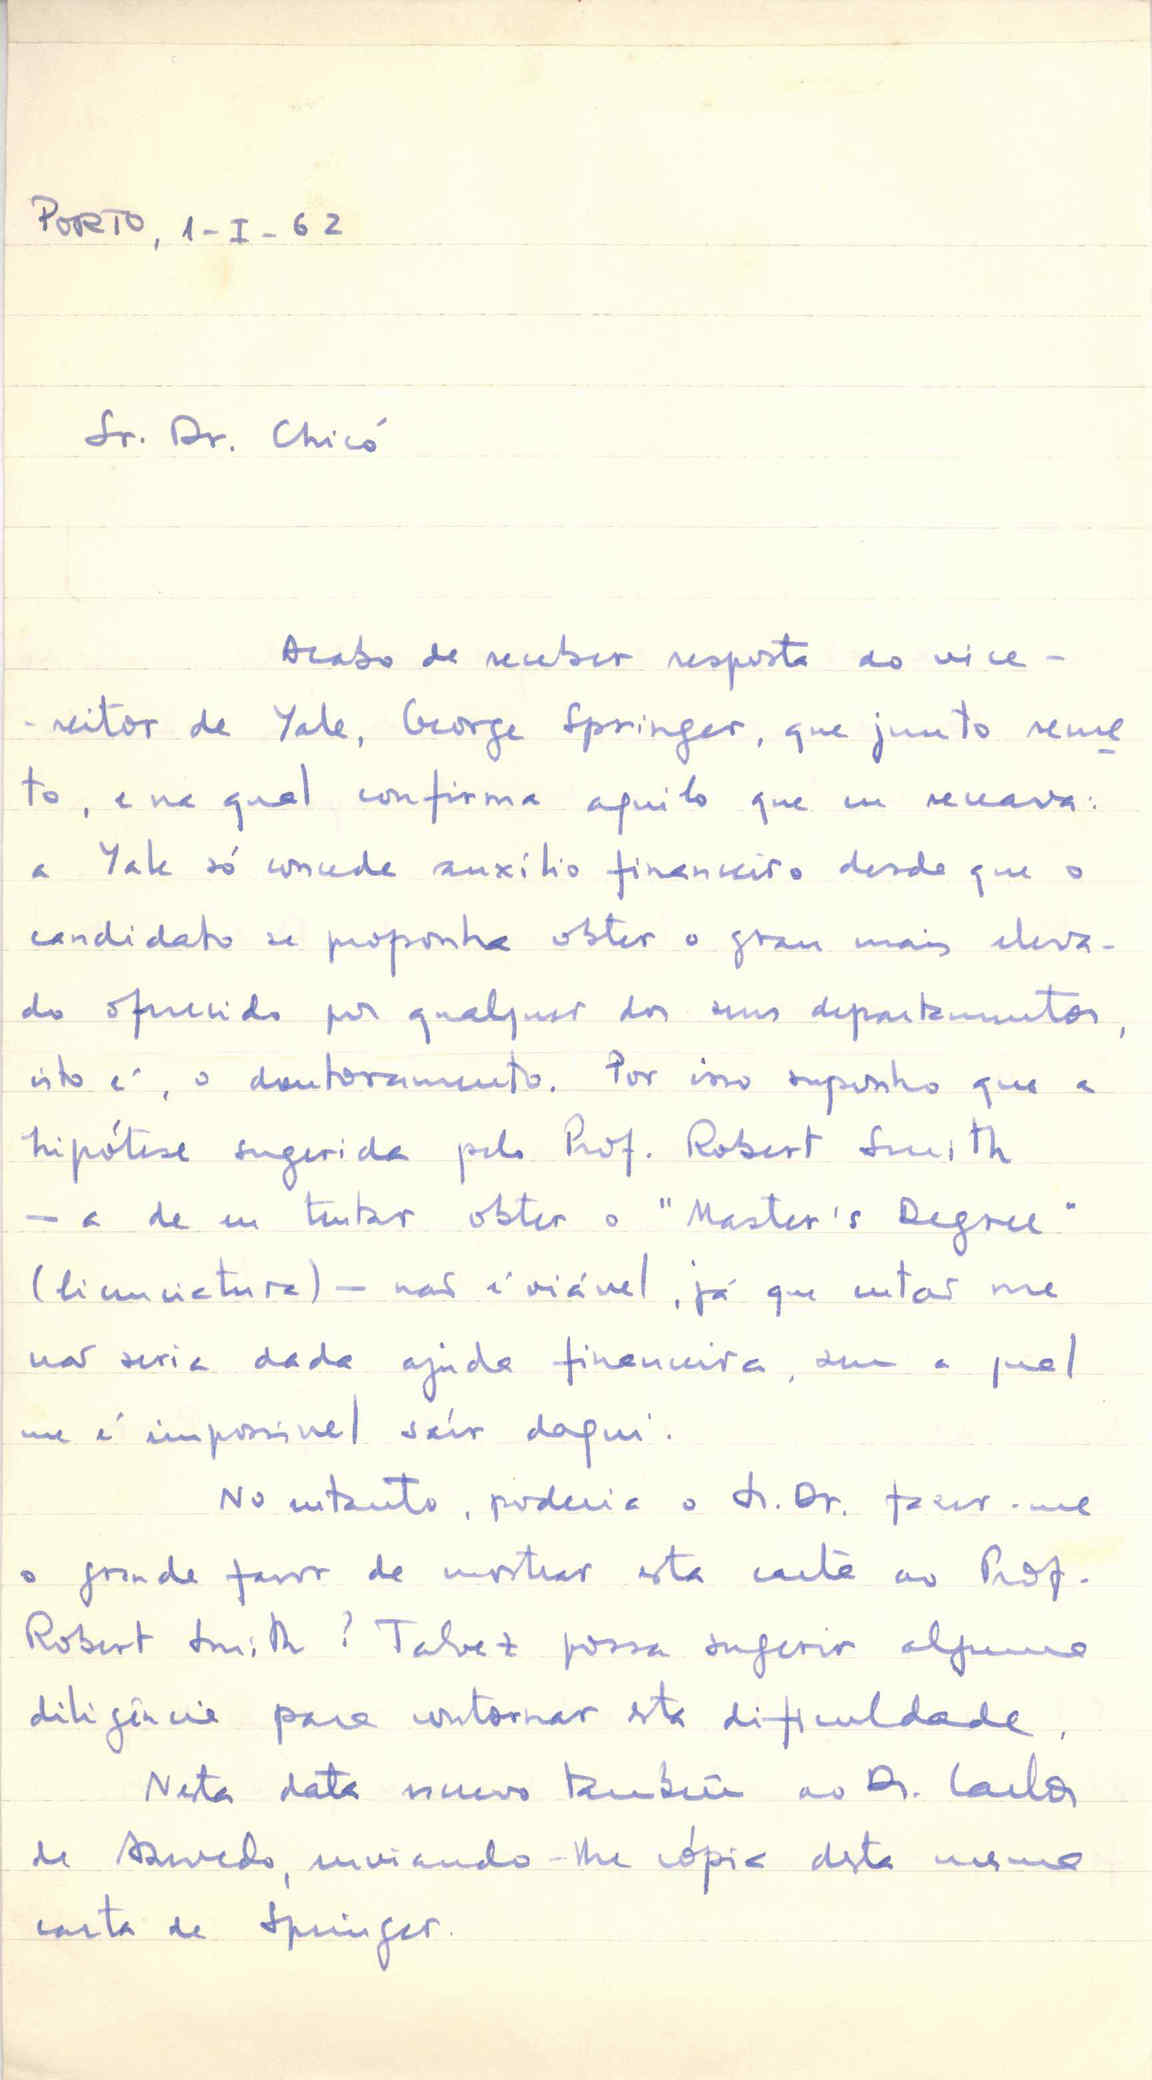 PORTO, 1-I-62
Sr. Dr. Chicó
Acabo de receber resposta do vice-
-reitor de Yale, George Springer, que junto reme
to, e na qual confirma aquilo que eu receava:
a Yale só concede auxílio financeiro desde que o
candidato se proponha obter o grau mais eleva-
do oferecido por qualquer dos seus departamentos,
isto é, o doutoramento. Por isso suponho que a
hipótese sugerida pelo Prof. Robert Smith
— a de eu tentar obter o "Master's Degree"
(licenciatura) — não é viável, já que então me
não seria dada ajuda financeira, sem a qual
me é impossível saír daqui.
No entanto, poderia o Sr. Dr. fazer-me
o grande favor de mostrar esta carta ao Prof.
Robert Smith? Talvez possa sugerir alguma
diligência para contornar esta dificuldade.
Nesta data escrevo também ao Dr. Carlos
de Azevedo, enviando-lhe cópia desta mesma
carta de Springer.